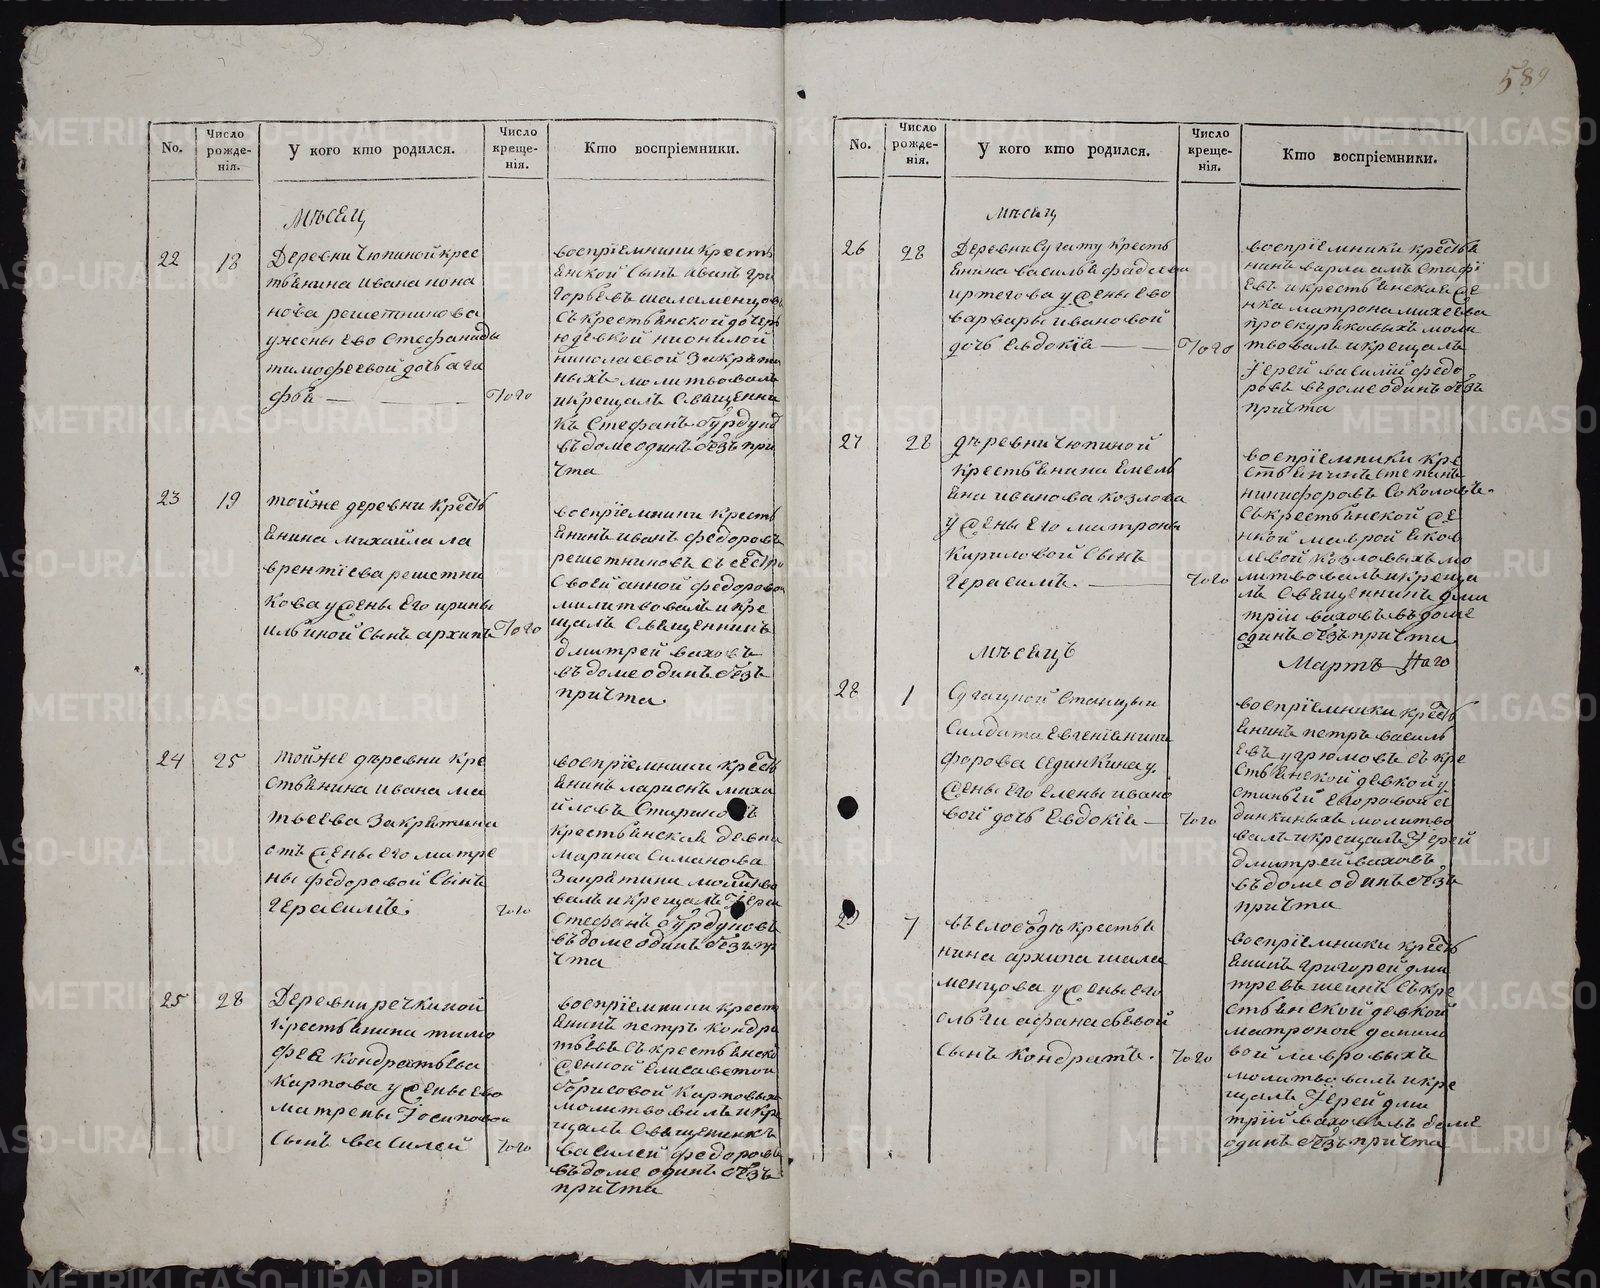 589
No.
Число рожде-нія.
У кого кто родился.
Число креще-нія.
Кто воспріемники.
мѣсец
22
18
деревни Чюпиной крес
тьенина ивана кона
нова решетникова
ужены ево Стефаниды
тимофеевой дочь ага
фѣѣ
того
воспріемники кресть
енской Сынъ иванъ гри
горьевъ шаламенцовъ
Съ крестьенской дочерью
девкой
николаевой Закрѣти
ныхъ молитвовалъ
икрещалъ Священни
къ Стефанъ бурдун
въ доме одинъ безъ при
чта
23
19
тойже деревни крестъ
енина михайла ла
врентіева решетни
кова уженыего ирины
ильиной Сынъ архипъ
того
воспріемники кресть
енинъ иванъ федоровъ
решетниковъ съ сестро
Своей анной федоровой
милитвовалъ икре
щалъ Священникъ
дмитрей ваховъ
въ доме одинъ безъ
причта
24
25
тойже дѣревни кре
стьенина ивана ма
тьеева Закрятина
отъ жены его матре
ны федоровой Сынъ
герасимъ.
того
воспріемники крестъ
енинъ ларионъ миха
йловъ Стариковъ
крестьенская девка
марина Симанова
Закрятини молитво
валъ и крещалъ Ѓерей
Стефанъ бурдуковъ
въ доме одинъ безъ пр
чта
25
28
деревни речкиной
Крестьенина тимо
фея кондратьева
карпова у жены ево
матрены Ѓосиповой
Сынъ василей
того
воспріемники крест
енинъ петръ кондра
тьевъ Съ крестьенско
женкой елисаветой
борисовой карповых
молитвовалъ и кре
щалъ Священникъ
василей федоровъ
въ доме одинъ безъ
причта
No.
Число рожде-нія.
У кого кто родился.
Число креще-нія.
Кто воспріемники.
мѣсец
26
28
деревни Сугату кресть
енина василья фадеева
иртегова у жены ево
варвары ивановой
дочь евдокіѣ
того
воспріемники кресть
нинъ варлаамъ Стафі
евъ и крестьенская же
нка матрона михеева
проскуряковыхъ моли
твовалъ икрещалъ
Ѓерей василій федо
ровъ въ доме одинъ безъ
причта
27
28
дѣревни Чюпиной
крестьенина емель
ена иванова козлова
у жены его матроны
Кириловой Сынъ
герасимъ.
того
воспріемники кре
стьенинъ степанъ
никифоровъ Соколовъ.
Съ крестьенской же
нкой маврой еков
левой козловыхъ мо
литвовалъ и креща
лъ Священникъ дми
трій ваховъ въ доме
одинъ безъ причта
мѣсецъ
Мартъ
28
1
Сугацной Станцыи
Салдата евгенія ники
форова Сединкина у.
жены его елены ивано
вой дочь евдокіѣ
того
воспріемники крестъ
енинъ петръ василь
евъ угрюмовъ съ кре
стьенской девкой у
стиньей егоровой се
динкиныхъ молитво
валъ и крещалъ Ѓерей
дмитрей ваховъ,
въ доме одинъ безъ
причта
29
7
въ слободѣ крестье
нина архипа шала
менцова у жены его
ольги афанасьевой
Сынъ кондратъ.
того
воспріемники крестъ
енинъ григорей дми
тревъ шеинъ съ кре
стьенской девкой
матроной данило
вой лавровыхъ
молитвовалъ и кре
щалъ Ѓерей дми
трій ваховъ въ доме
одинъ безъ причта